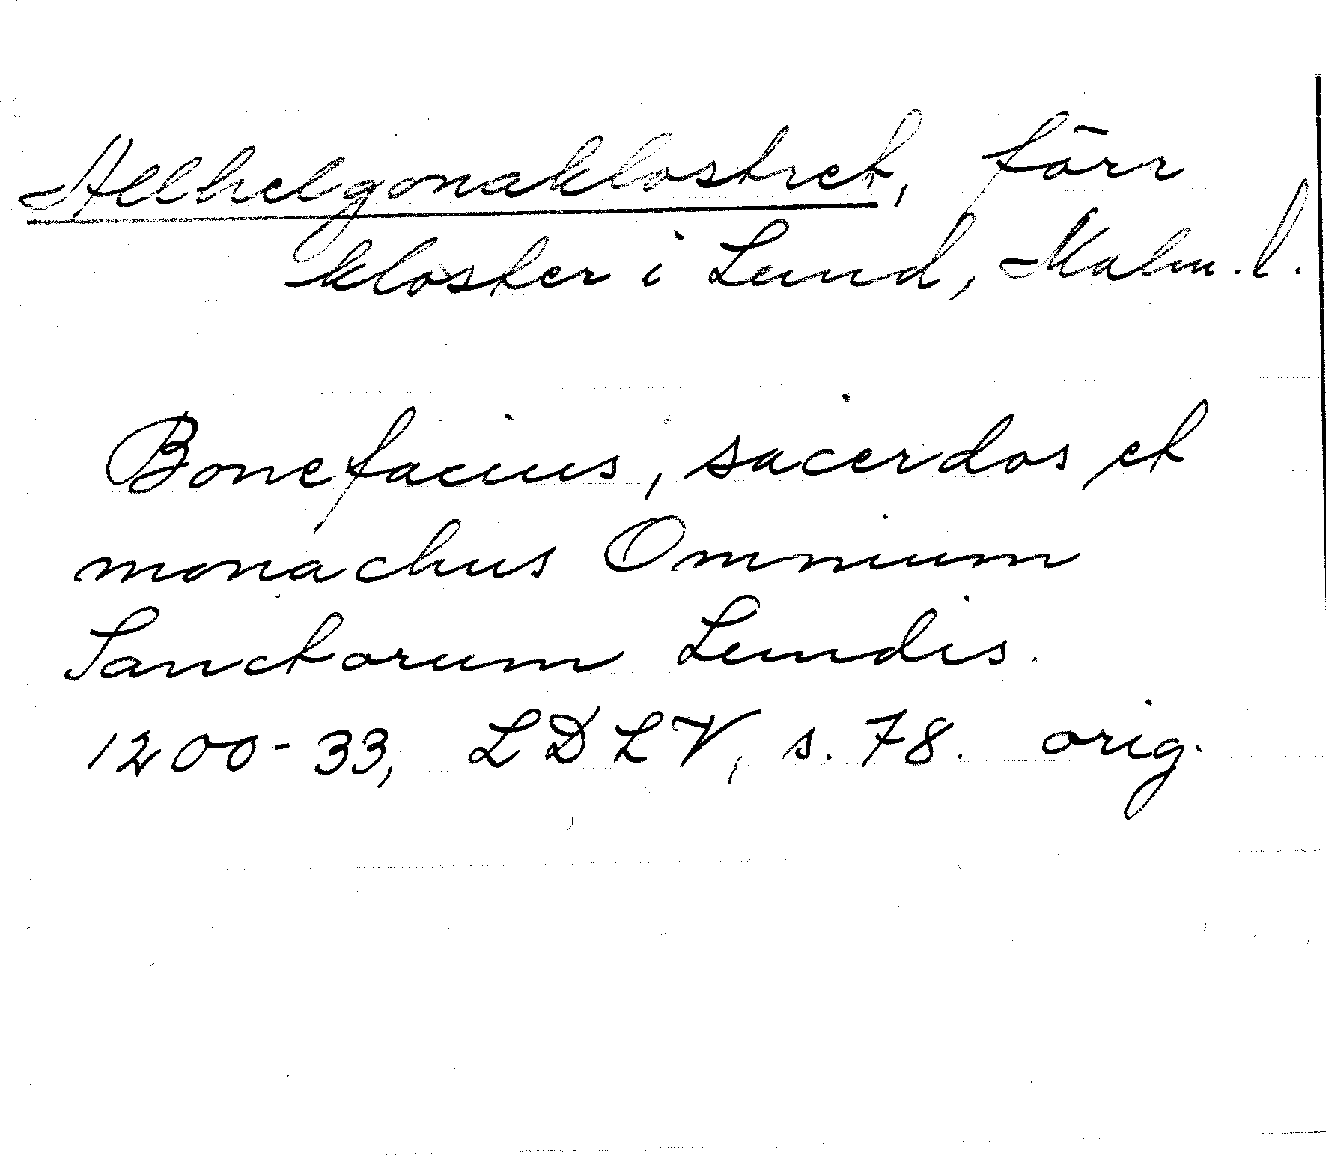 Allhelgonaklostret, förr
kloster i Lund, Malm. l.
Bonefacius, sacerdos et
monachus Omnium
Sanctorum Lundis.
1200-33, LDLV, s. 78. orig.